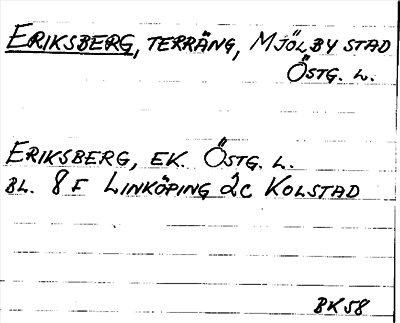 ERIKSBERG, TERRÄNG, MJÖLBY STAD
ÖSTG. L.
ERIKSBERG, EK. ÖSTG. L.
BL. 8 F LINKÖPING 2C KOLSTAD
BK58